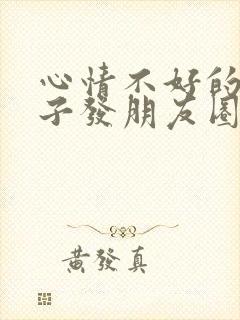 心情不好的
子發朋友圈
黃發真